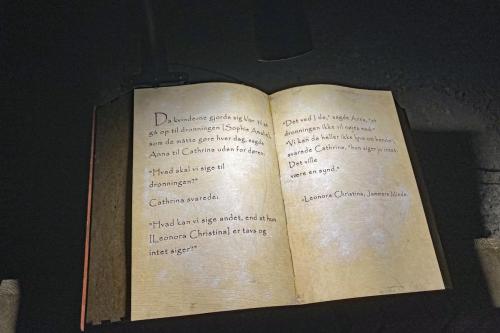 Da kvinderne gjorde sig klar til at
gå op til dronningen [Sophie Amalie],
som de måtte gøre hver dag, sagde
Anna til Cathrina uden for døren:
"Hvad skal vi sige til
dronningen?"
Cathrina svarede:
"Hvad kan vi sige andet, end at hun
[Leonora Christina] er tavs og
intet siger?"
"Det ved I da," sagde Anna, "at
dronningen ikke vil nøjes med."
"Vi kan da heller ikke lyve om hende,"
svarede Cathrina, "hun siger jo intet.
Det ville
være en synd."
-Leonora Christina, Jammers Minde